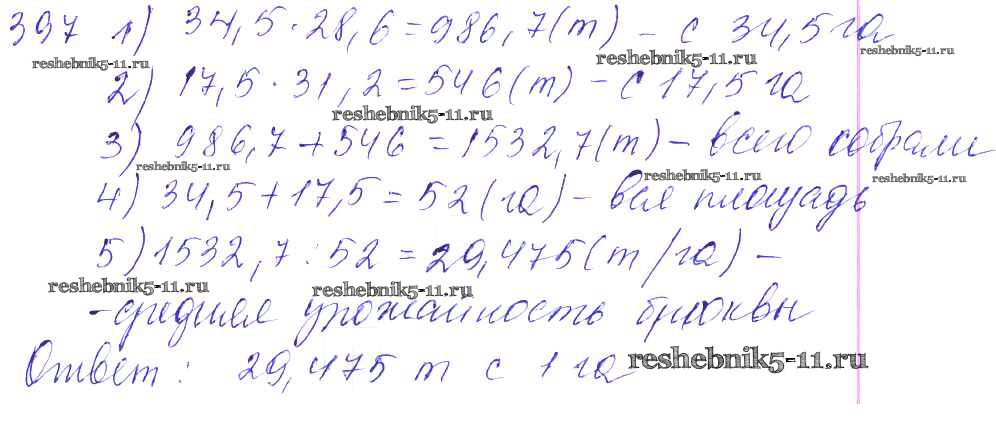 397 1) 34,5 · 28,6 = 986,7 (т) – с 34,5 га
reshebnik5-11.ru reshebnik5-11.ru reshebnik5-11.ru
2) 17,5 · 31,2 = 546 (т) – с 17,5 га
reshebnik5-11.ru
3) 986,7 + 546 = 1532,7 (т) – всего собрали
reshebnik5-11.ru reshebnik5-11.ru reshebnik5-11.ru
4) 34,5 + 17,5 = 52 (га) – вся площадь
5) 1532,7 : 52 = 29,475 (т/га) –
reshebnik5-11.ru reshebnik5-11.ru
– средняя урожайность брюквы
Ответ: 29,475 т с 1 га
reshebnik5-11.ru